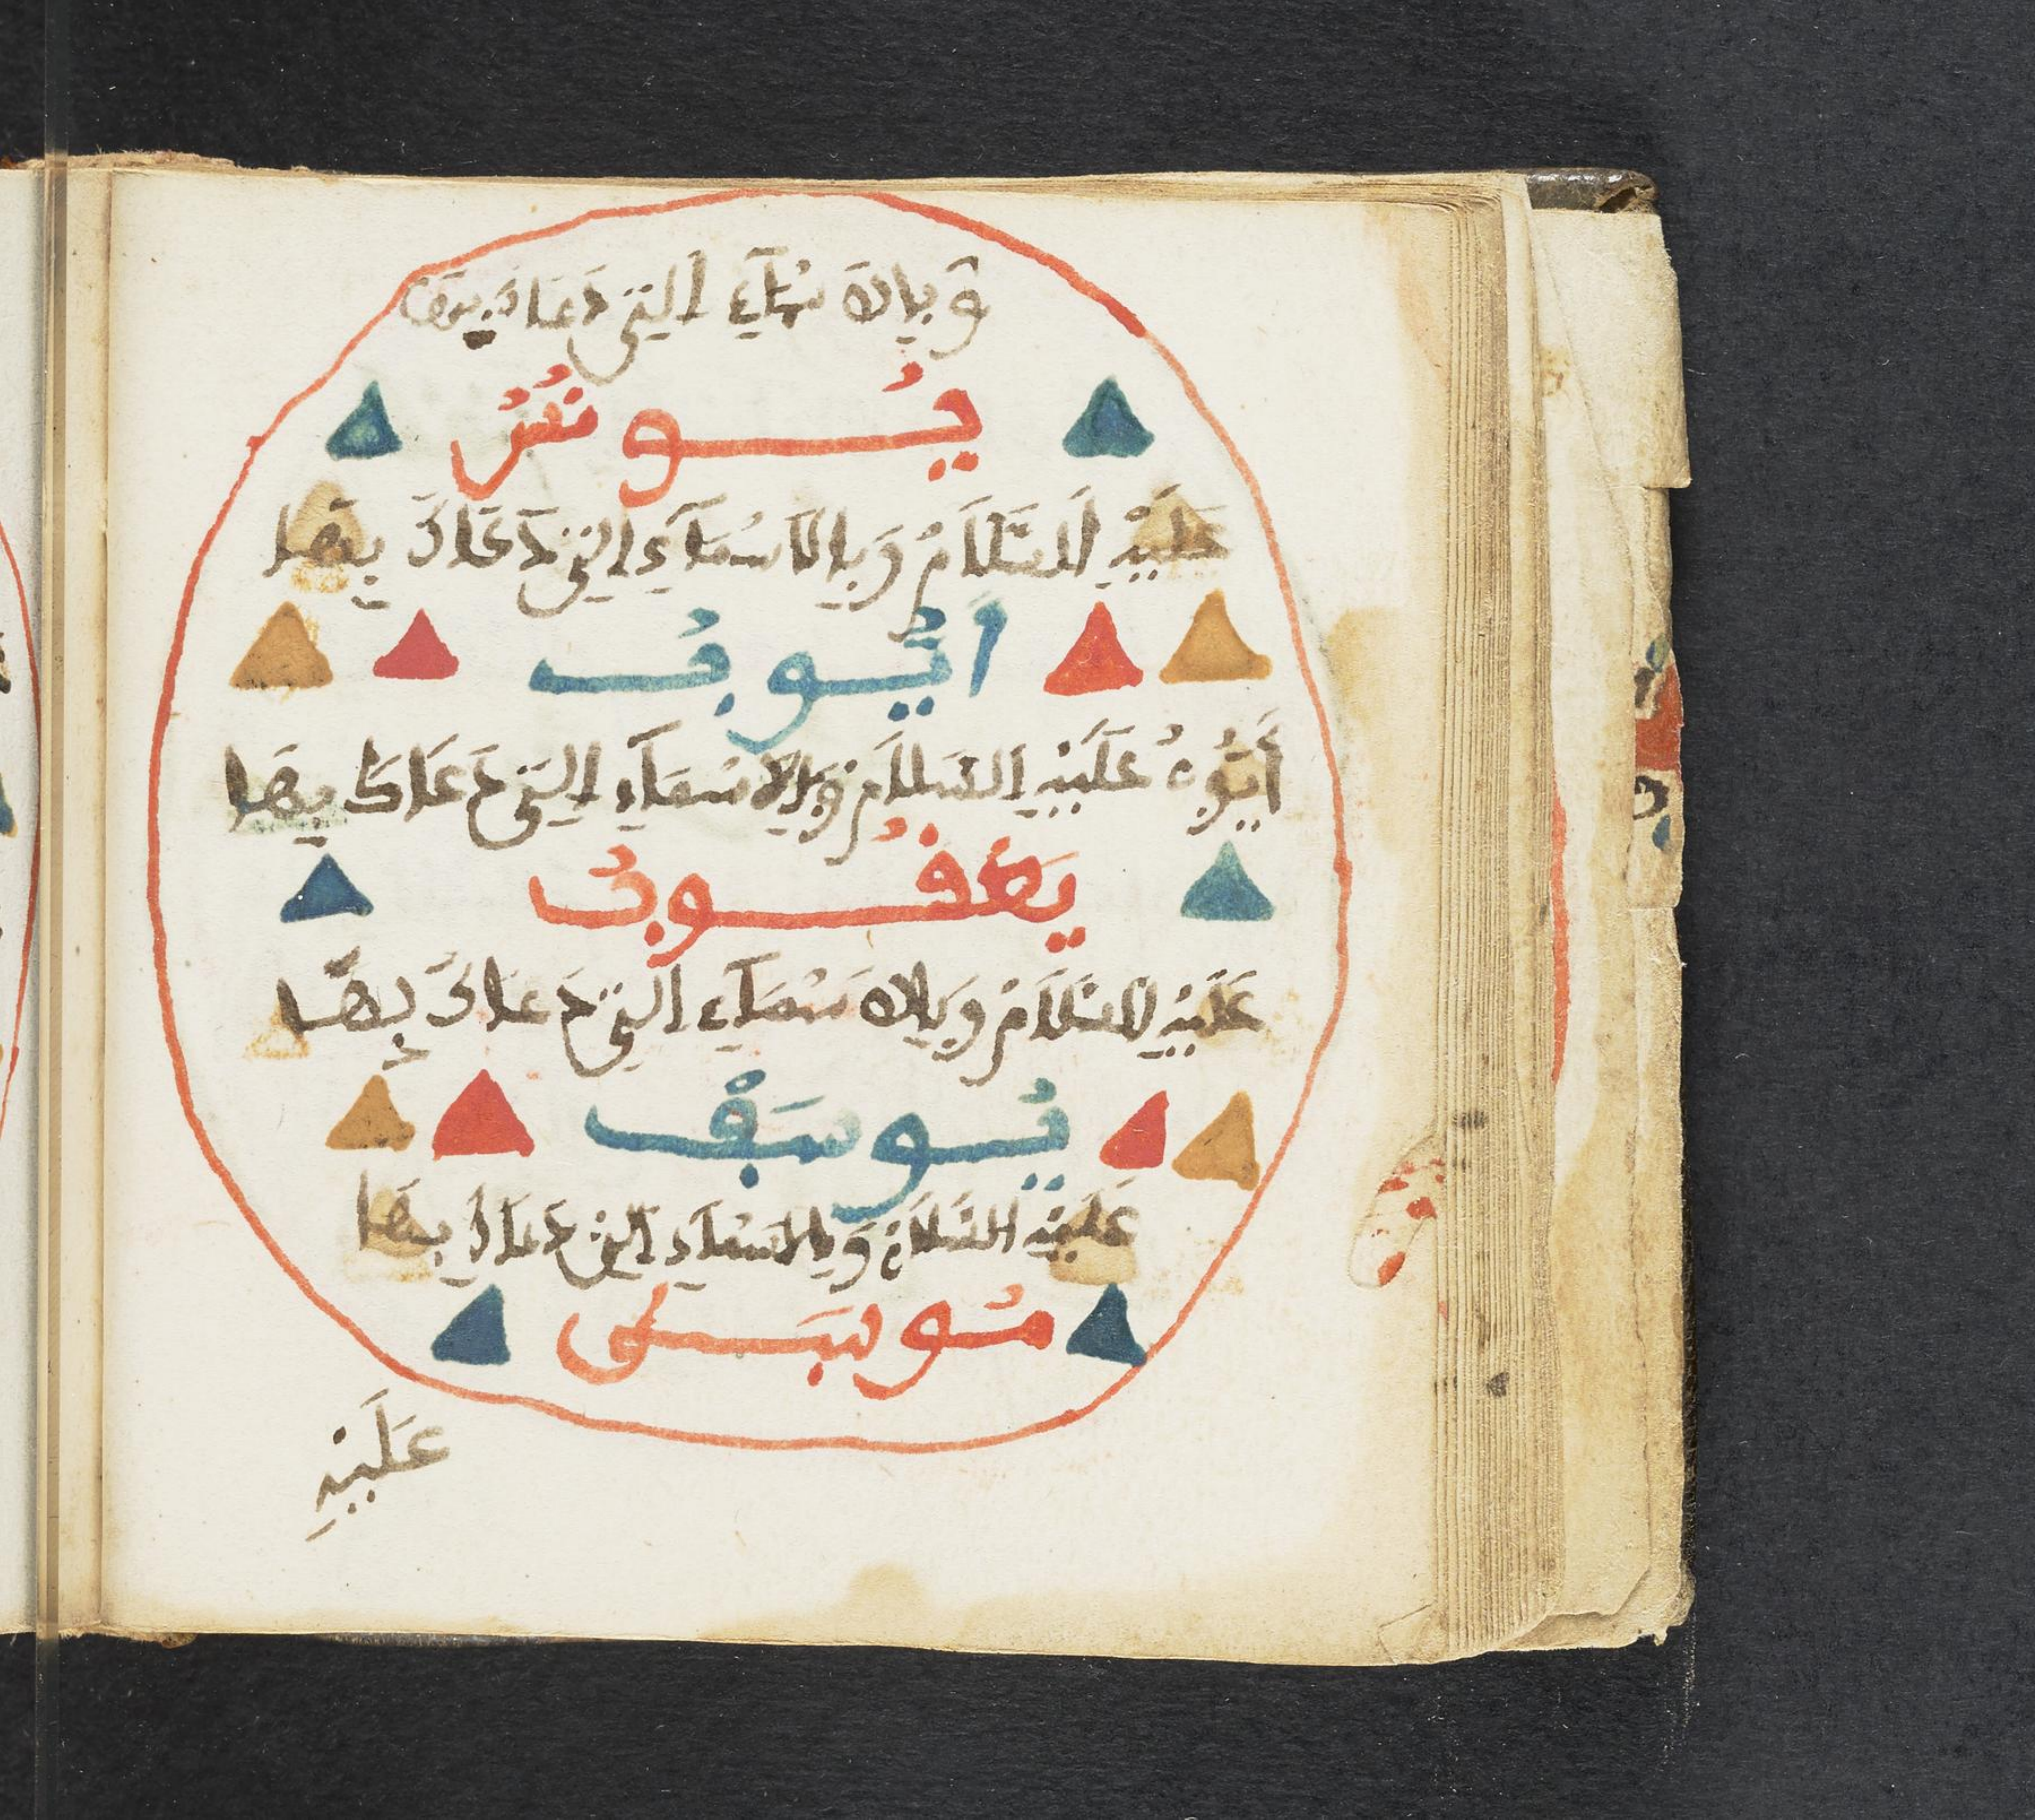 وَبِالاَسْمَآءِ التِي دَعَاكَ بِهَا
يُونُسُ
عَلَيْهِ السَّلَامُ وَبِالاَسْمَآءِ التِي دَعَاكَ بِهَا
اَيُّوبُ
أَيُّوبُ عَلَيْهِ السَّلَامُ وَبِالاَسْمَآءِ التِي دَعَاكَ بِهَا
يَعْفُوبُ
عَلَيْهِ السَّلَامُ وَبِالاَسْمَآءِ التِي دَعَاكَ بِهَا
يُوسَڢُ
عَلَيْهِ السَّلَامُ وَبِالاَسْمَآءِ التِي دَعَاكَ بِهَا
مُوسَىٰ
عَلَيْهِ